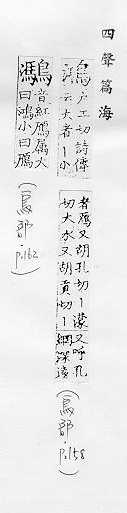 四聲篇海
鳿戶工切詩傳
鴻云大者｜小
者雁又胡孔切｜濛又呼孔
切大水又胡貢切｜絧深遠
(鳥部 p.158)
鳿音紅鴈屬大
鴻曰鴻小曰鴈
(鳥部 p.162)